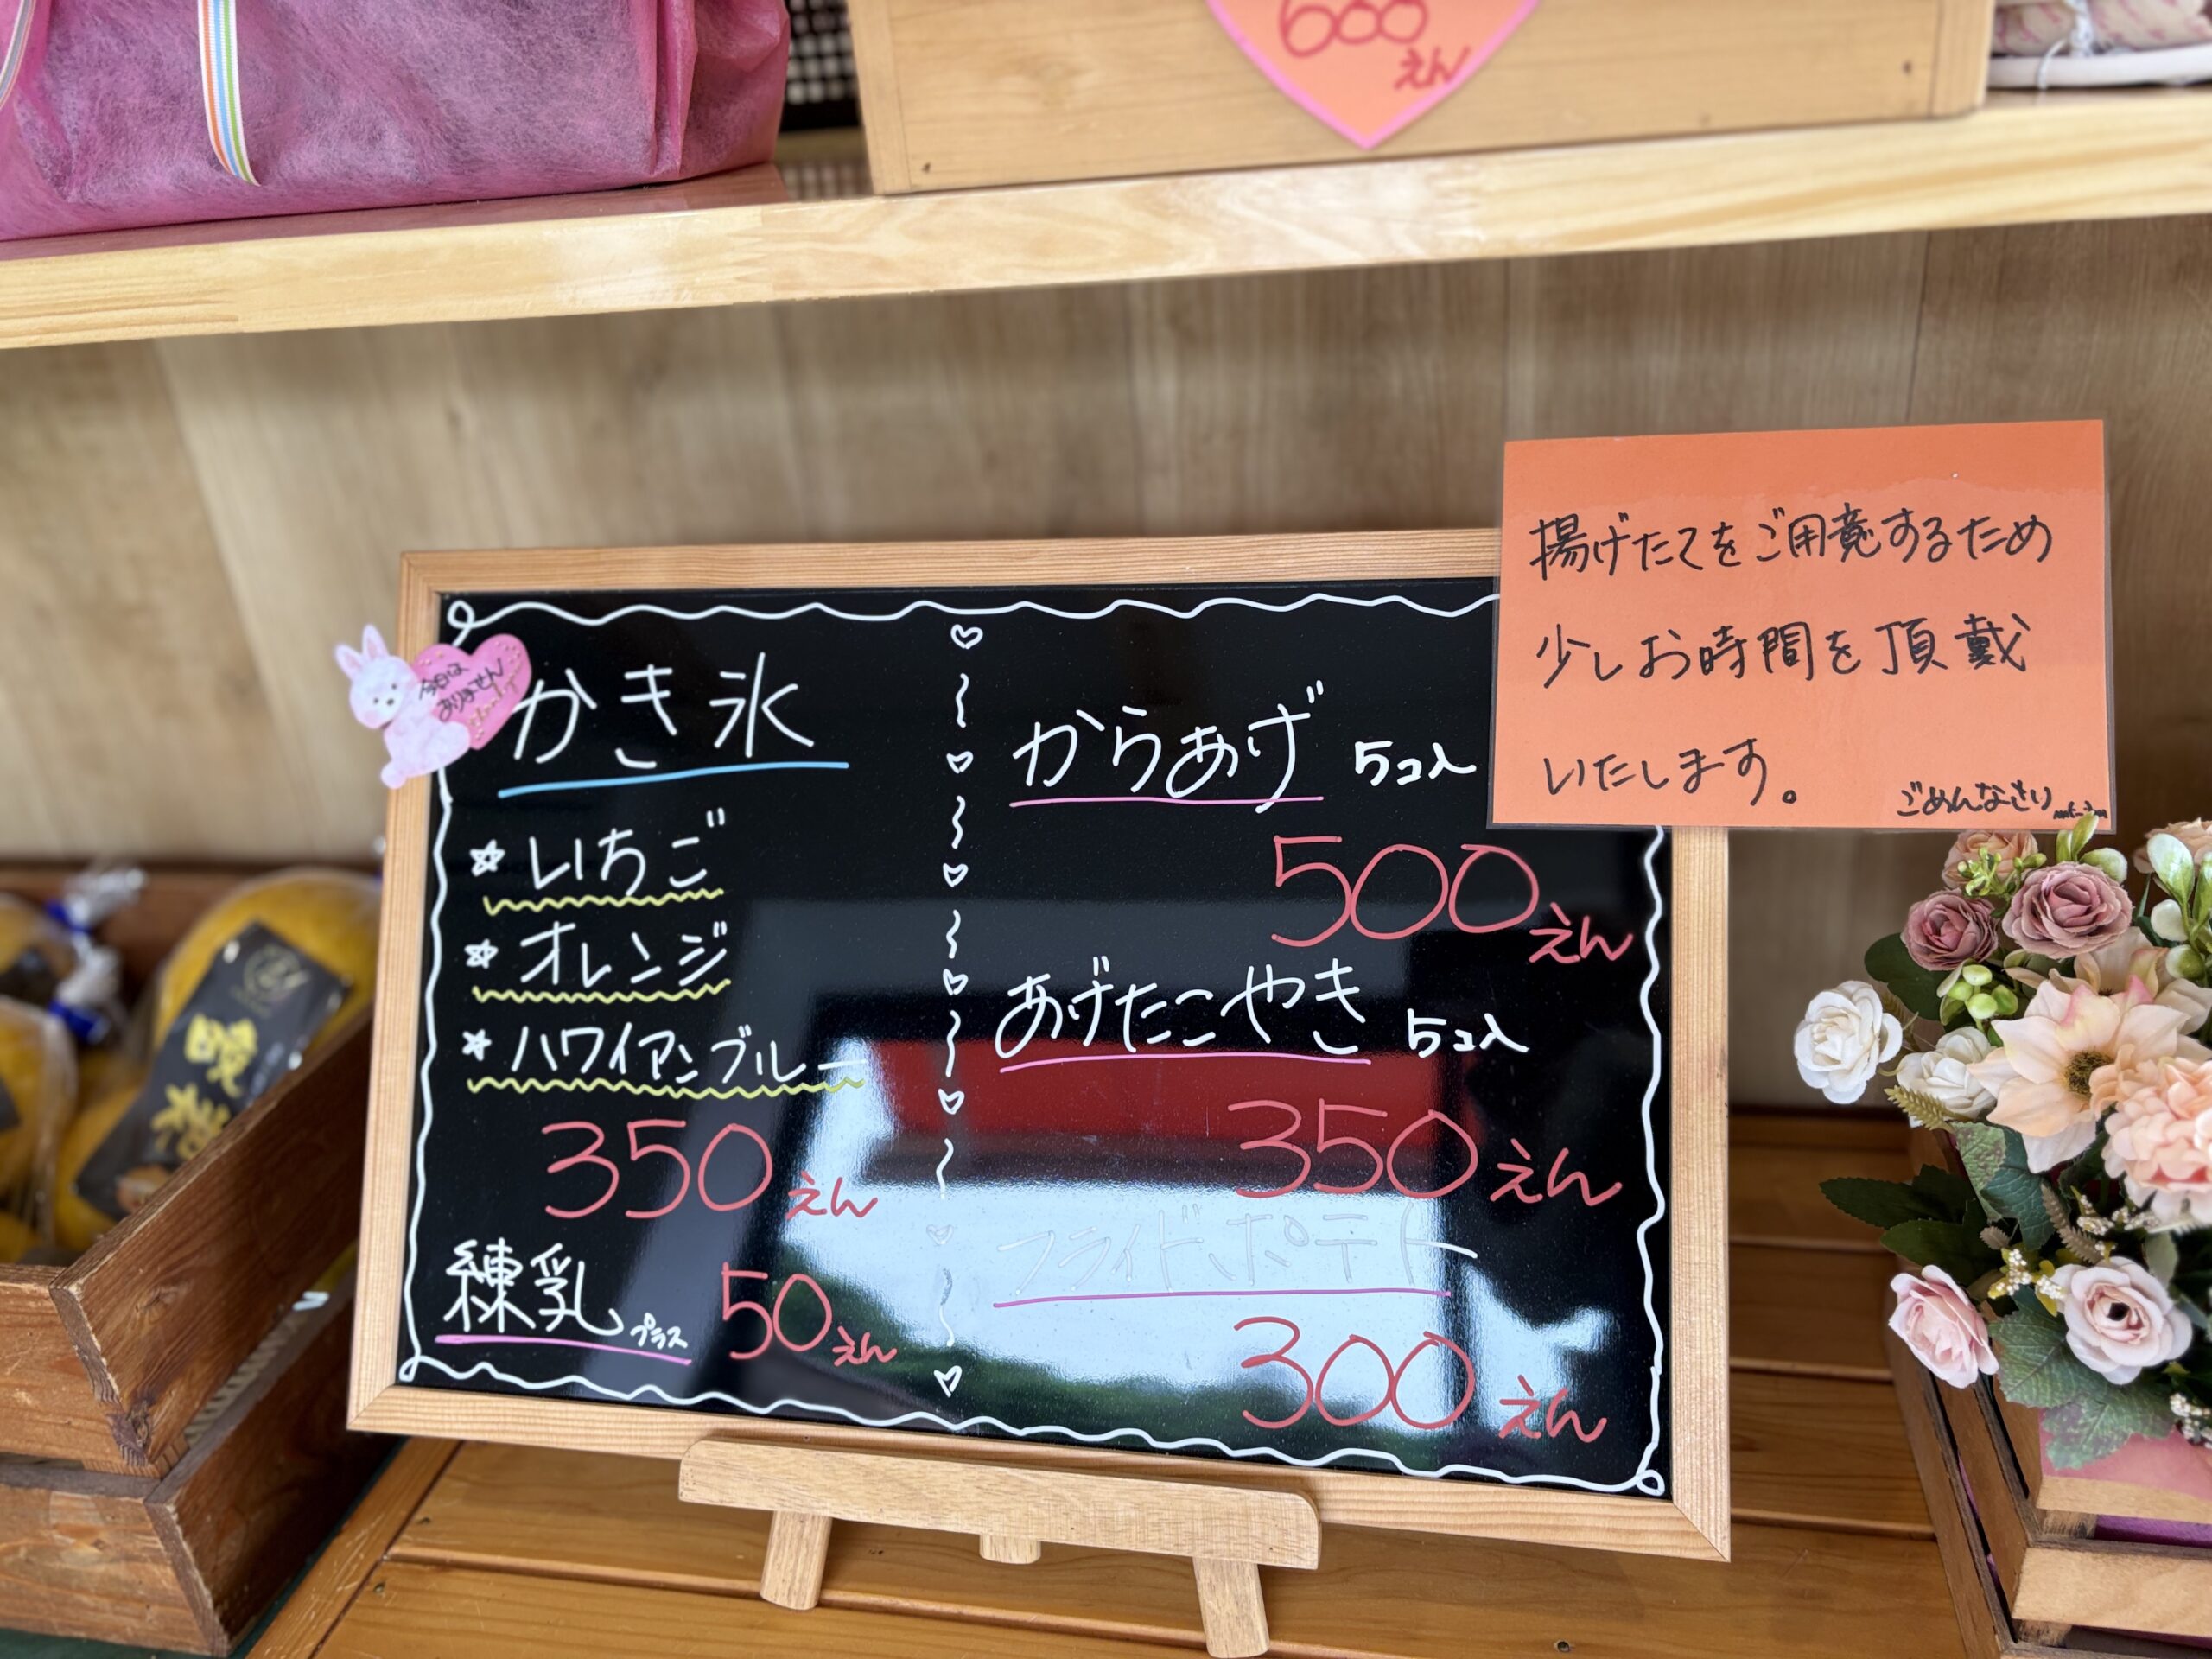 600
えん
今日は
ありません
かき氷
☆いちご
☆オレンジ
☆ハワイアンブルー
350えん
練乳プラス 50えん
からあげ 5コ入
500えん
あげたこやき 5コ入
350えん
フライドポテト
300えん
揚げたてをご用意するため
少しお時間を頂戴
いたします。
ごめんなさい